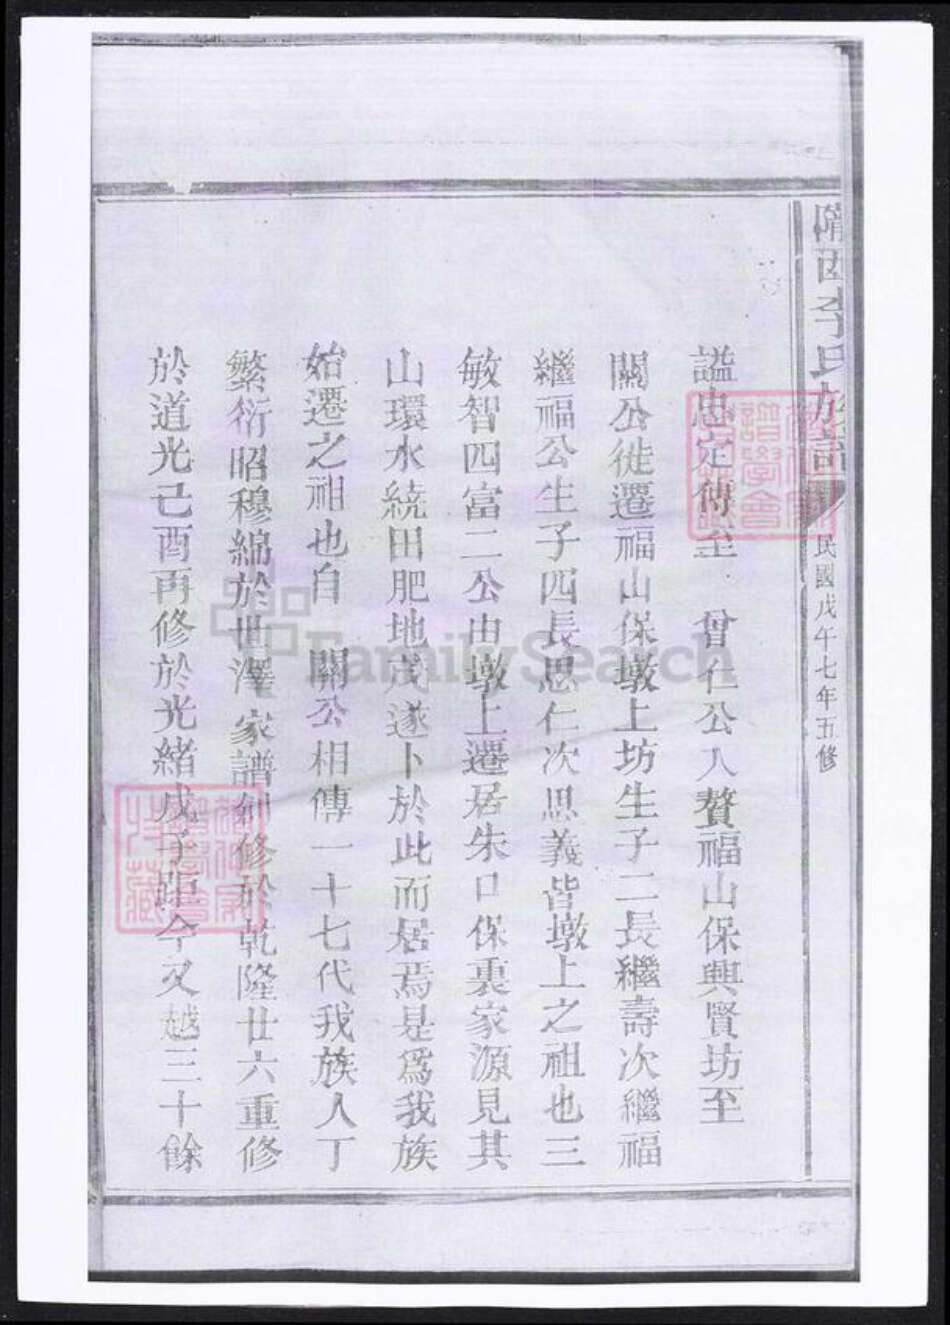 隴西李氏族譜
民國戊午七年五修
謚忠定傳至 曾仁公入贅福山保興賢坊至
關公徙遷福山保墩上坊生子二長繼壽次繼福
繼福公生子四長思仁次思義皆墩上之祖也三
敏智四富二公由墩上遷居朱口保裏家源見其
山環水繞田肥地茂遂卜於此而居焉是爲我族
始遷之祖也自 關公相傳一十七代我族人丁
繁衍昭穆綿於世澤 家譜創修於乾隆廿六重修
於道光己酉再修於光緒戊子距今又越三十餘
FamilySearch